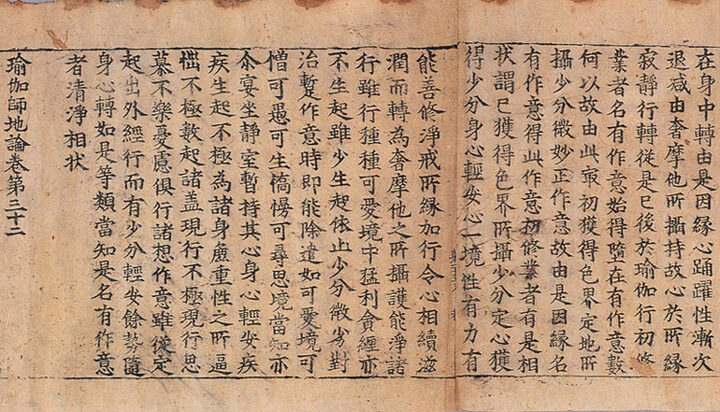 在身中轉由是因緣心踊躍性漸次
退減由奢摩他所攝持故心於所緣
寂靜行轉從是已後於瑜伽行初修
業者名有作意始得墮在有作意數
何以故由此㝡初獲得色界定地所
攝少分微妙正作意故由是因緣名
有作意得此作意初修業者有是相
狀謂已獲得色界所攝少分定心獲
得少分身心輕安心一境性有力有
能善修淨戒所緣加行令心相續滋
潤而轉為奢摩他之所攝護能淨諸
行雖行種種可愛境中猛利貪纏亦
不生起雖少生起依止少分微劣對
治暫作意時即能除遣如可愛境可
憎可愚可生憍慢可尋思境當知亦
尒宴坐靜室暫持其心身心輕安疾
疾生起不極為諸身麁重性之所逼
惱不極數起諸盖現行不極現行思
慕不樂憂慮俱行諸想作意雖從定
起出外經行而有少分輕安餘勢隨
身心轉如是等類當知是名有作意
者清淨相狀
瑜伽師地論卷第三十二